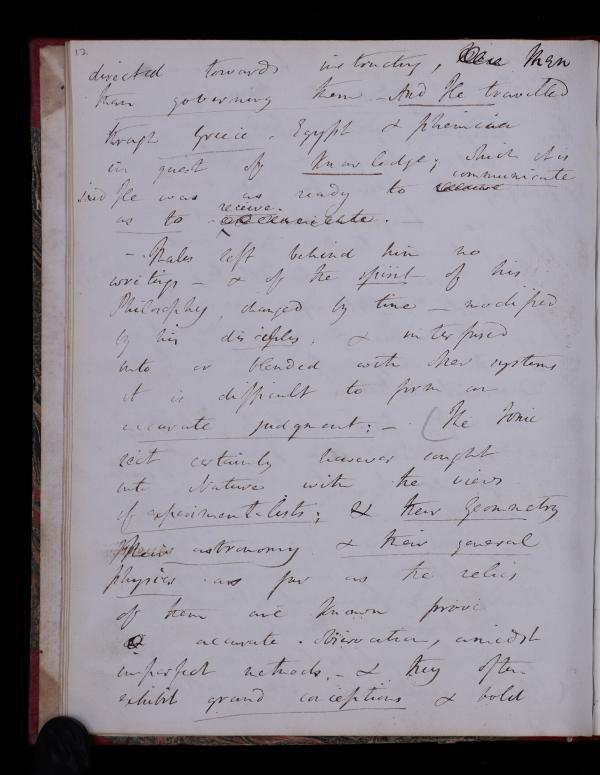 12
directed towards instructing, Men
than governing them And He travelled
through Greece, Egypt & phenicia
in quest of Knowledge; which it is
communicate
said He was as ready to receive
receive.
as to communicate. –
– Thales left behind him no
writings – & of the spirit of his
Philosophy, changed by time – modified
by his disciples, & interfused
into or blended with other systems
it is difficult to form an
accurate judgment: – (The Ionic
sect certainly however sought
into Nature with the views
of experimentalists; & their Geometry
their astronomy & their general
physics as far as the relics
of them are known prove
accurate observation, amidst
imperfect methods, – & they often
exhibit grand conceptions & bold